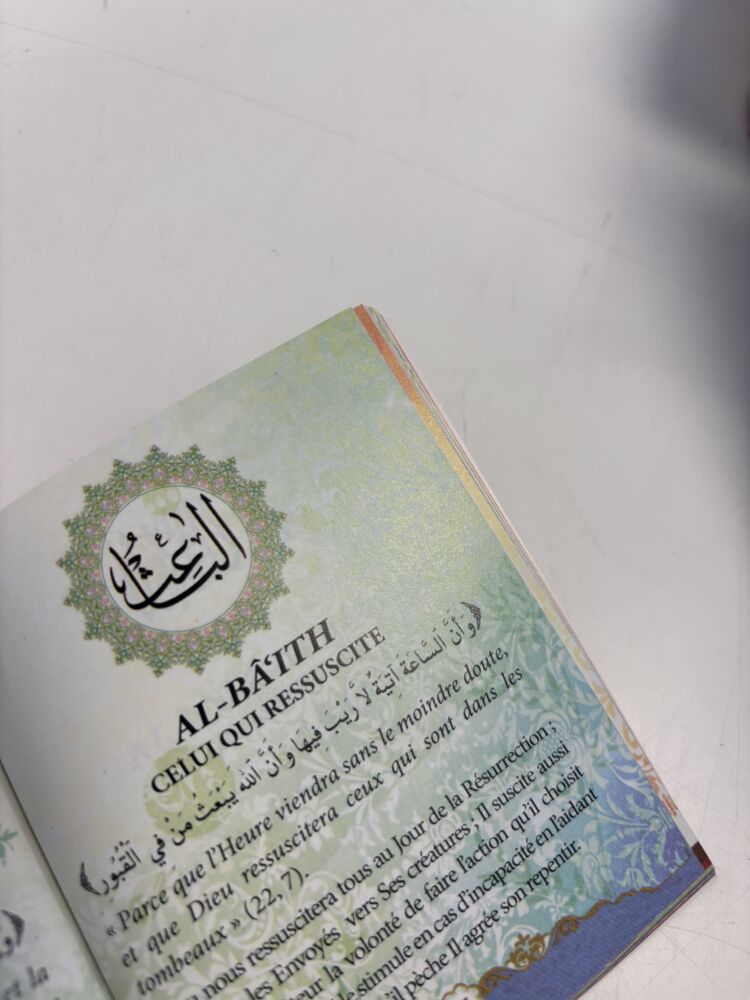 الباعث
AL-BÂ‘ITH
CELUI QUI RESSUSCITE
﴿وَأَنَّ السَّاعَةَ آتِيَةٌ لَا رَيْبَ فِيهَا وَأَنَّ اللَّهَ يَبْعَثُ مَنْ فِي الْقُبُورِ﴾
« Parce que l'Heure viendra sans le moindre doute,
et que Dieu ressuscitera ceux qui sont dans les
tombeaux » (22, 7).
nous ressuscitera tous au Jour de la Résurrection ;
les Envoyés vers Ses créatures ; Il suscite aussi
la volonté de faire l'action qu'il choisit
le stimule en cas d'incapacité en l'aidant
qu'il pèche Il agrée son repentir.
et la